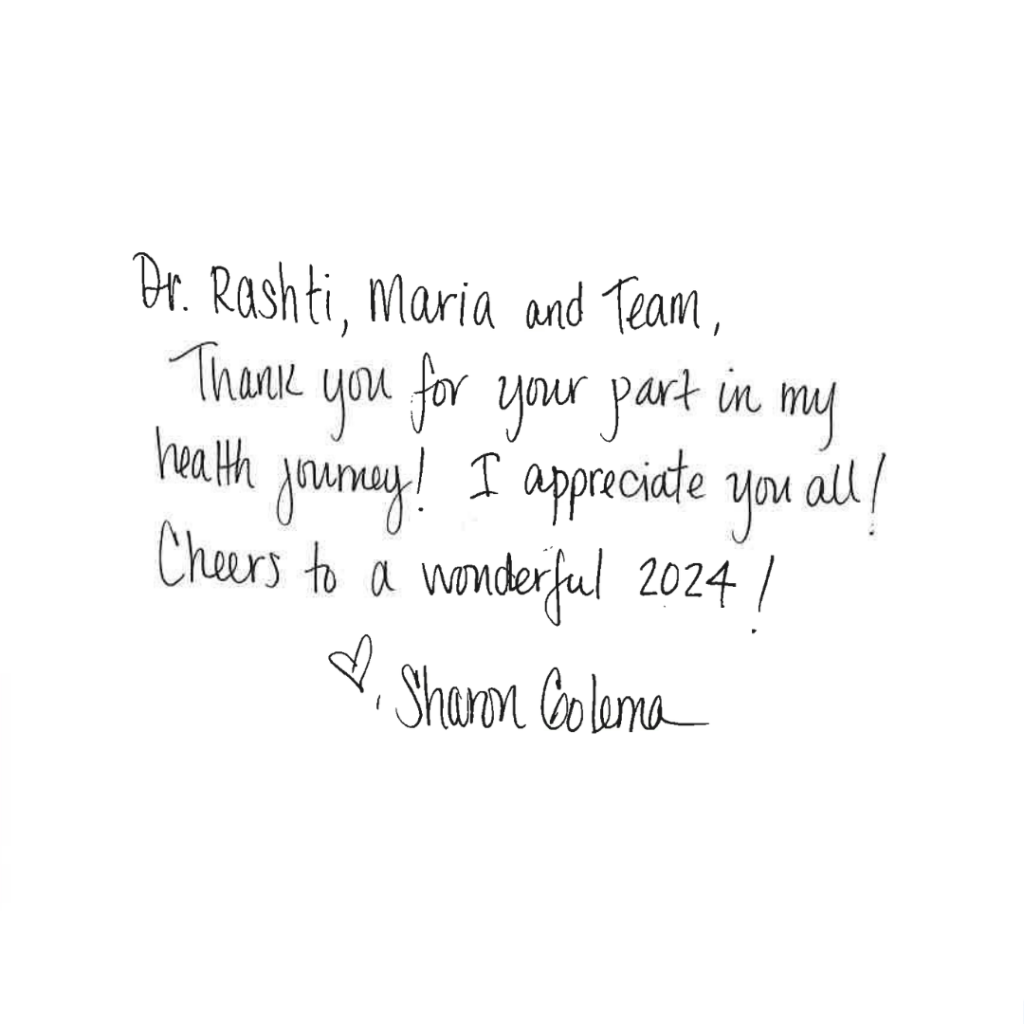 Dr. Rashti, Maria and Team,
Thank you for your part in my
health journey! I appreciate you all!
Cheers to a wonderful 2024!
♡, Sharon Golema